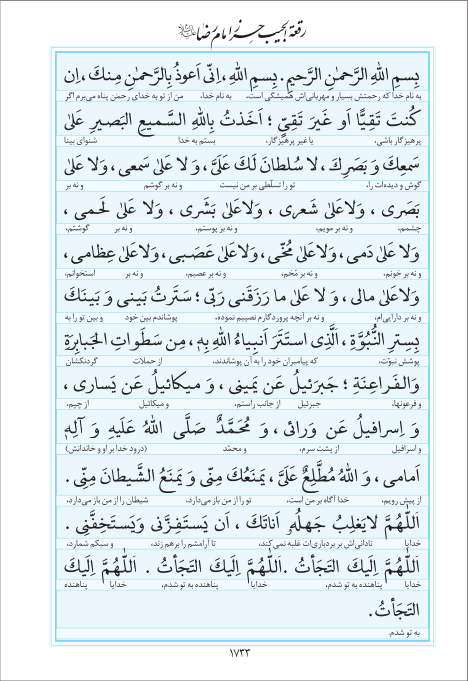 رقعة الجیب حرز امام رضا علیه‌السلام
بِسمِ اللّٰهِ الرَّحمٰنِ الرَّحیمِ. بِسمِ اللّٰهِ، اِنّی اَعوذُ بِالرَّحمٰنِ مِنكَ، اِن
به نام خدا که رحمتش بسیار و مهربانی‌اش همیشگی است، به نام خدا، من از تو به خدای رحمٰن پناه می‌برم اگر
كُنتَ تَقِیًّا اَو غَیرَ تَقِیٍّ؛ اَخَذتُ بِاللّٰهِ السَّمیعِ البَصیرِ عَلىٰ
پرهیزگار باشی، یا غیر پرهیزگار، بستم به خدا شنوای بینا
سَمعِكَ وَ بَصَرِكَ، لا سُلطانَ لَكَ عَلَیَّ، وَ لا عَلىٰ سَمعی، وَلا عَلىٰ
گوش و دیده‌ات را، تو را تسلّطی بر من نیست و نه بر گوشم و نه بر
بَصَری، وَلا عَلىٰ شَعری، وَلا عَلىٰ بَشَری، وَلا عَلىٰ لَحمی،
چشمم، و نه بر مویم، و نه بر پوستم، و نه بر گوشتم،
وَلا عَلىٰ دَمی، وَلا عَلىٰ مُخّی، وَلا عَلىٰ عَصَبی، وَلا عَلىٰ عِظامی،
و نه بر خونم، و نه بر مُخم، و نه بر عصبم، و نه بر استخوانم،
وَلا عَلىٰ مالی، وَ لا عَلىٰ ما رَزَقَنی رَبّی؛ سَتَرتُ بَینی وَ بَینَكَ
و نه بر دارایی‌ام، و نه بر آنچه پروردگارم نصیبم نموده، پوشاندم بین خود و بین تو را به
بِسِترِ النُّبُوَّةِ، اَلَّذِی استَتَرَ اَنبِیاءُ اللّٰهِ بِهٖ، مِن سَطَواتِ الجَبابِرَةِ
پوشش نبوّت، که پیامبران خود را به آن پوشاندند، از حملات گردنکشان
وَالفَراعِنَةِ؛ جَبرَئیلُ عَن یَمینی، وَ میكائیلُ عَن یَساری،
و فرعونها، جبرئیل از جانب راستم، و میکائیل از چپم،
وَ اِسرافیلُ عَن وَرائی، وَ مُحَمَّدٌ صَلَّى اللّٰهُ عَلَیهِ وَ آلِهٖ
و اسرافیل از پشت سرم، و محمّد (درود خدا بر او و خاندانش)
اَمامی، وَ اللّٰهُ مُطَّلِعٌ عَلَیَّ، یَمنَعُكَ مِنّی وَ یَمنَعُ الشَّیطانَ مِنّی.
از پیش رویم، خدا آگاه بر من است، تو را از من باز می‌دارد، شیطان را از من باز می‌دارد،
اَللّٰهُمَّ لایَغلِبُ جَهلُهٗ اَناتَكَ، اَن یَستَفِزَّنی وَیَستَخِفَّنی.
خدایا نادانی‌اش بر بردباری‌ات غلبه نمی‌کند، تا آرامشم را برهم زند، و سبکم شمارد،
اَللّٰهُمَّ اِلَیكَ التَجَأتُ. اَللّٰهُمَّ اِلَیكَ التَجَأتُ. اَللّٰهُمَّ اِلَیكَ
خدایا پناهنده به تو شدم، خدایا پناهنده به تو شدم، خدایا پناهنده
التَجَأتُ.
به تو شدم.
۱۷۳۳